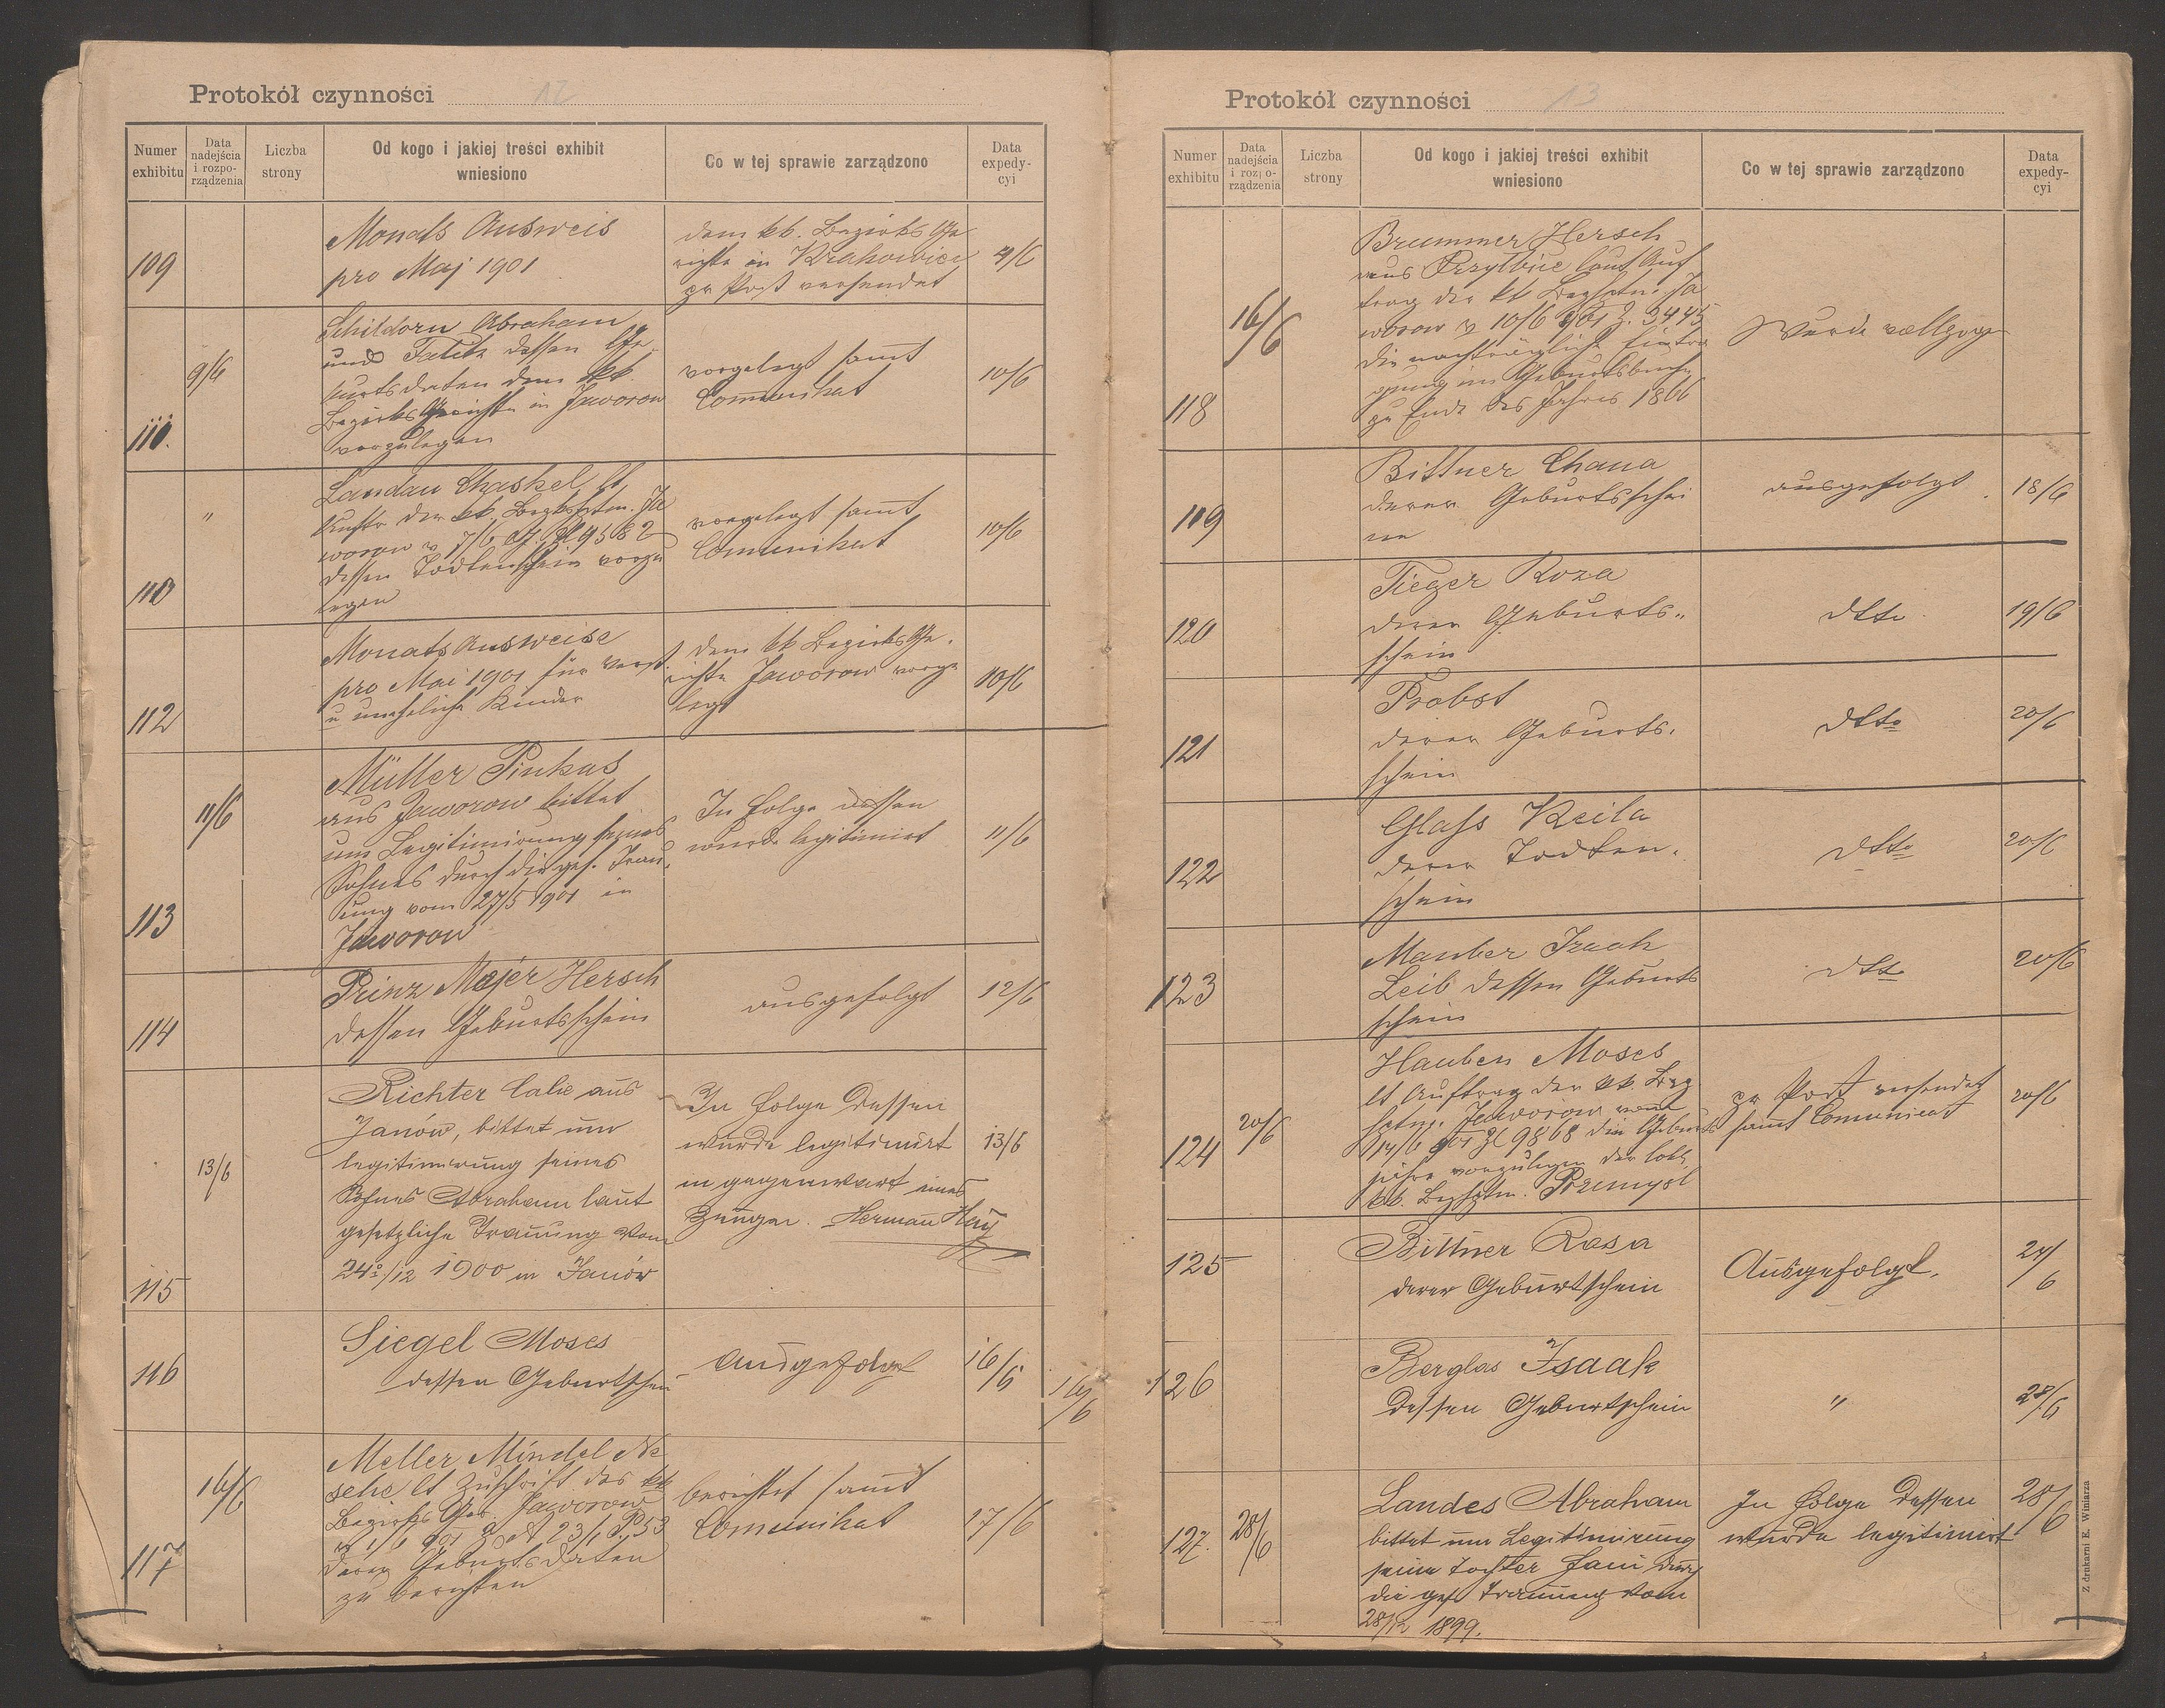 Protokół czynności 12
Numer exhibitu
Data nadejścia i rozporządzenia
Liczba strony
Od kogo i jakiej treści exhibit wniesiono
Co w tej sprawie zarządzono
Data expedycyi
109
Monats Ausweis
pro Maj 1901
dem kk. Bezirks Ge
richte in Krakowice
zr Post versendet
4/6
110.
9/6
Schildorn Abraham
und dessen Ge
burtsdaten dem kk
Bezirks Gerichte in Jaworow
vorzulegen
vorgelegt samt
Comunikat
10/6
110
"
Landau Chaskel lt
der kk Bezkshptm. Ja
worow v 7/6
dessen Todtenschein vorzu
legen
vorgelegt samt
Comunikat
10/6
112
Monats Ausweise
pro Mai 1901 für
u uneheliche Kinder
dem kk Bezirks Ge.
richte Jaworow vorge
legt
10/6
113
11/6
Müller Pinkas
aus Jaworow bittet
um Legitimirung seines
Sohnes durch die ges. Trau.
ung vom 27/5 1901 in
Jaworow
In folge dessen
wurde legitimirt
11/6
114
Prinz Majer Hersch
dessen Geburtsschein
ausgefolgt
12/6
115
13/6
Richter Calie aus
Janów, bittet um
legitimirung seines
Sohnes Abraham laut
gesetzliche Trauung vom
24/12 1900 in Janów
In folge dessen
wurde legitimirt
in gegenwart eines
Zeugen. Herman
13/6
116
Siegel Moses
dessen Geburtschein
Ausgefolgt
16/6
16/6
117
16/6
Meller Mindel Ne
sche lt Zuschrift des kk
Bezirks Ger. Jaworow
deren Geburtsdaten
zu berichten
berichtet samt
Comunikat
17/6
Protokół czynności 13
Numer exhibitu
Data nadejścia i rozporządzenia
Liczba strony
Od kogo i jakiej treści exhibit wniesiono
Co w tej sprawie zarządzono
Data expedycyi
118
16/6
Brummer Hersch
aus Przylbice laut Auf
trag der kk Bezhptm. Ja
worow v 10/6 901 Z. 3445
die nachträgliche Eintra
gung im Geburtsbuche
zu Ende des Jahres 1866
Wurde vollzogen
119
Bittner Chana
deren Geburtsschei
ne
ausgefolgt.
18/6
120
Tieger Roza
deren Geburts„
schein
dtto
19/6
121
Probst
deren Geburts.
schein
dtto
20/6
122
Glass Keila
deren Todten.
schein
dtto
20/6
123
Manber Izaak
Leib dessen Geburts
schein
dtto
20/6
124
20/6
Hauben Moses
lt Auftrag der kk. Bez
hptm. Jaworow vom
14/6 901 Zl 9868 die Geburts
vorzulegen der lobl.
kk. Bezhptm. Przemysl
zr Post versendet
samt Comunicat
20/6
125
Bittner Rosa
deren Geburtschein
Ausgefolgt.
24/6
126
Berglas Isaak
dessen Geburtschein
"
28/6
127.
28/6
Landes Abraham
bittet um Legitimirung
seine Tochter Fani durch
die ges Trauung vom
28/12 1899.
In folge dessen
wurde legitimirt
28/6
Z drukarni E. Winiarza